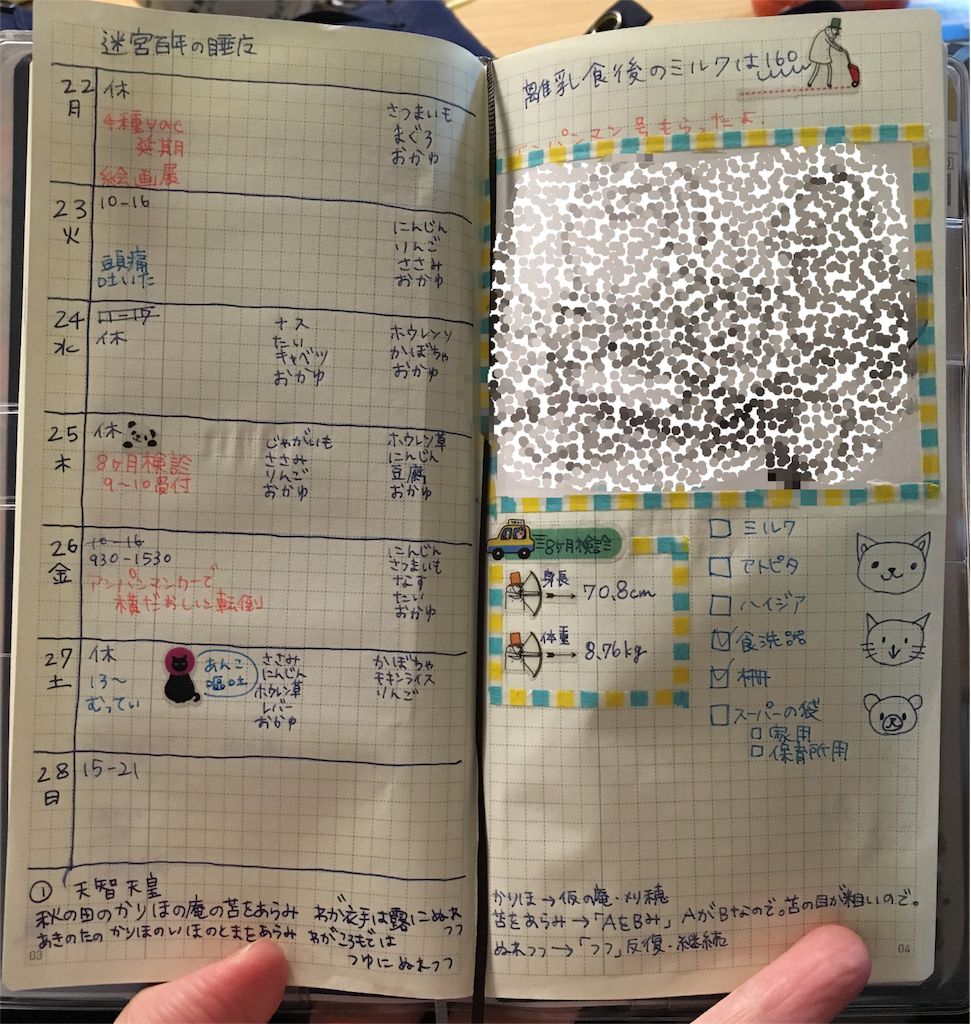 迷宮百年の睡魔
22
月
休
4種vac
延期
絵画展
さつまいも
まぐろ
おかゆ
23
火
10-16
頭痛
吐いた
にんじん
りんご
ささみ
おかゆ
24
水
休
ナス
たい
キャベツ
おかゆ
ホウレンソ
かぼちゃ
おかゆ
25
木
休
8ヶ月検診
9〜10受付
じゃがいも
ささみ
りんご
おかゆ
ホウレン草
にんじん
豆腐
おかゆ
26
金
10-16
930-1530
アンパンマンカーで
横だおしに転倒
にんじん
さつまいも
なす
たい
おかゆ
27
土
休
13〜
むってぃ
あんこ
嘔吐
ささみ
にんじん
ホウレン草
レバー
おかゆ
かぼちゃ
チキンライス
りんご
28
日
15-21
① 天智天皇
秋の田のかりほの庵の苫をあらみ わが衣手は露にぬれ
つつ
あきのたの かりほのいほのとまをあらみ わがころもでは
つゆに ぬれつつ
03
離乳食後のミルクは160
アンパンマン号もらったよ.
8ヶ月検診
身長
70.8cm
体重
8.76kg
ミルク
アトピタ
ハイジア
食洗器
柵
スーパーの袋
家用
保育所用
かりほ→仮の庵・刈穂
苫をあらみ→「AをBみ」 AがBなので。苫の目が粗いので。
ぬれつつ→「つつ」反復・継続
04